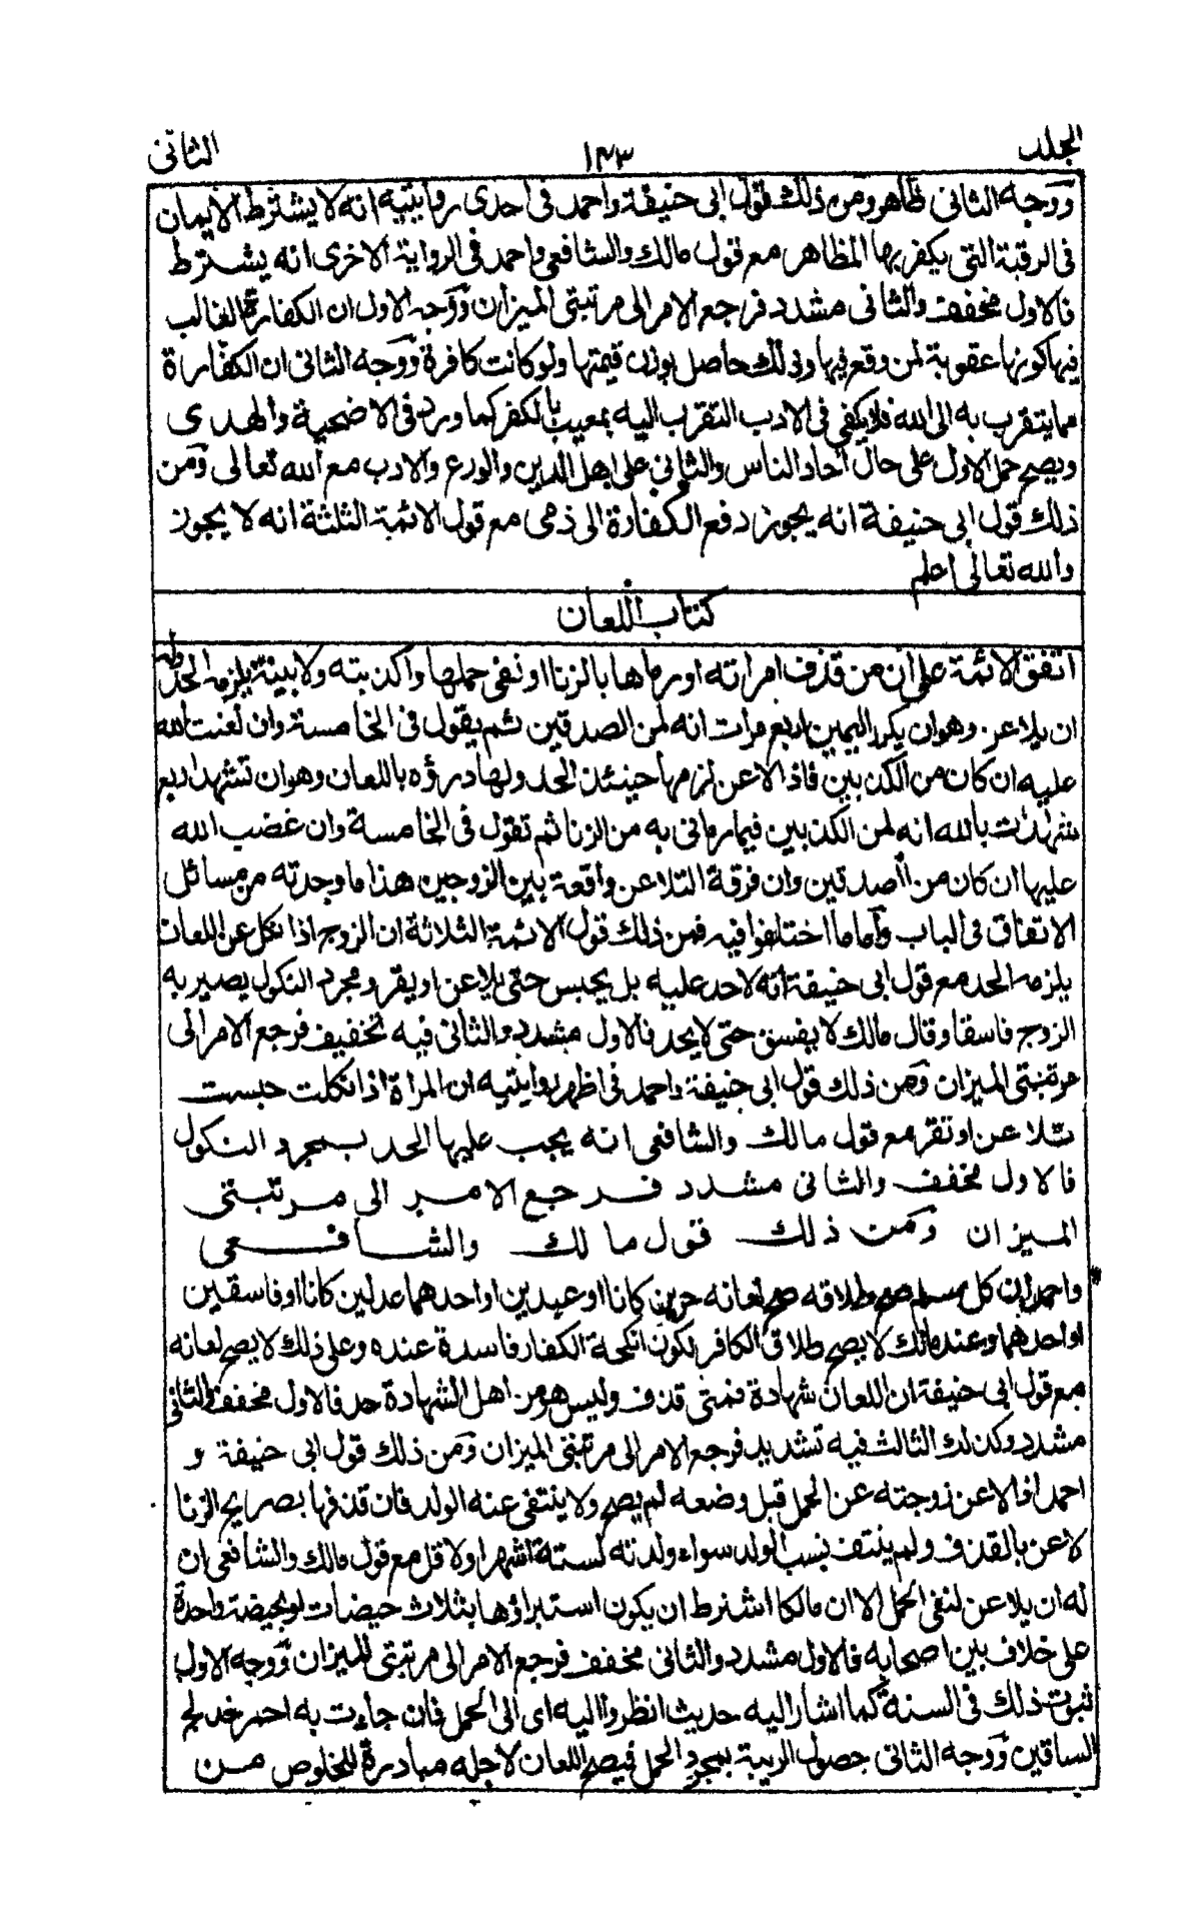 الجلد
١٤٣
الثانى
ووجه الثانى ظاهر ومن ذلك قول ابى حنيفة واحمد فى احدى روايتيه انه لا يشترط الايمان
فى الرقبة التى يكفر بها المظاهر مع قول مالك والشافعى واحمد فى الرواية الاخرى انه يشترط
فالاول مخفف والثانى مشدد فرجع الامر الى مرتبتى الميزان ووجه الاول ان الكفارة الغالب
فيها كونها عقوبة لمن وقع فيها وذلك حاصل بوزن قيمتها ولو كانت كافرة ووجه الثانى ان الكفارة
مما يتقرب به الى الله فلا يكفى فى الادب التقرب اليه بمعيب بالكفر كما ورد فى الاضحية والهدى
ويصح حمل الاول على حال آحاد الناس والثانى على اهل الدين والورع والادب مع الله تعالى ومن
ذلك قول ابى حنيفة انه يجوز دفع الكفارة الى ذمى مع قول الائمة الثلثة انه لا يجوز
والله تعالى اعلم
كتاب اللعان
اتفق الائمة على ان من قذف امراته او رماها بالزنا او نفى حملها واكذبته ولا بينة يلزمه الحد وله
ان يلاعن وهو ان يكرر اليمين اربع مرات انه لمن الصدقين ثم يقول فى الخامسة وان لعنت الله
عليه ان كان من الكذبين فاذا لاعن لزمها حينئذ الحد ولها درؤه باللعان وهو ان تشهد اربع
شهدت بالله انه لمن الكذبين فيما رمانى به من الزنا ثم تقول فى الخامسة وان غضب الله
عليها ان كان من الصدقين وان فرقة التلاعن واقعة بين الزوجين هذا ما وجدته من مسائل
الاتفاق فى الباب واما ما اختلفوا فيه فمن ذلك قول الائمة الثلاثة ان الزوج اذا نكل عن اللعان
يلزمه الحد مع قول ابى حنيفة انه لا حد عليه بل يحبس حتى يلاعن او يقر ومجرد النكول يصير به
الزوج فاسقا وقال مالك لا يفسق حتى لا يحد فالاول مشدد والثانى فيه تخفيف فرجع الامر الى
مرتبتى الميزان ومن ذلك قول ابى حنيفة واحمد فى اظهر روايتيه ان المراة اذا نكلت حبست
تلاعن او تقر مع قول مالك والشافعى انه يجب عليها الحد بمجرد النكول
فالاول مخفف والثانى مشدد فرجع الامر الى مرتبتى
الميزان ومن ذلك قول مالك والشافعى
واحمد ان كل مسلم صح طلاقه صح لعانه حرين كانا او عبدين او احدهما عدلين كانا او فاسقين
او احدهما وعند مالك لا يصح طلاق الكافر لكون انكحة الكفار فاسدة عنده وعلى ذلك لا يصح لعانه
مع قول ابى حنيفة ان اللعان شهادة فمتى قذف وليس هو من اهل الشهادة حد فالاول مخفف والثانى
مشدد وكذلك الثالث فيه تشديد فرجع الامر الى مرتبتى الميزان ومن ذلك قول ابى حنيفة و
احمد اذا لاعن زوجته عن الحمل قبل وضعه لم يصح ولا ينتفى عنه الولد فان قذفها بصريح الزنا
لاعن بالقذف ولم ينتف نسب الولد سواء ولدته لستة اشهر او لاقل مع قول مالك والشافعى ان
له ان يلاعن لنفى الحمل الا ان مالكا اشترط ان يكون استبراؤها بثلاث حيضات او بحيضة واحدة
على خلاف بين اصحابه فالاول مشدد والثانى مخفف فرجع الامر الى مرتبتى الميزان ووجه الاول
ثبوت ذلك فى السنة كما اشار اليه حديث انظروا اليه اى الى الحمل فان جاءت به احمر خدلج
الساقين ووجه الثانى حصول الريبة بمجرد الحمل فيصح اللعان لاجله مبادرة للخلوص من